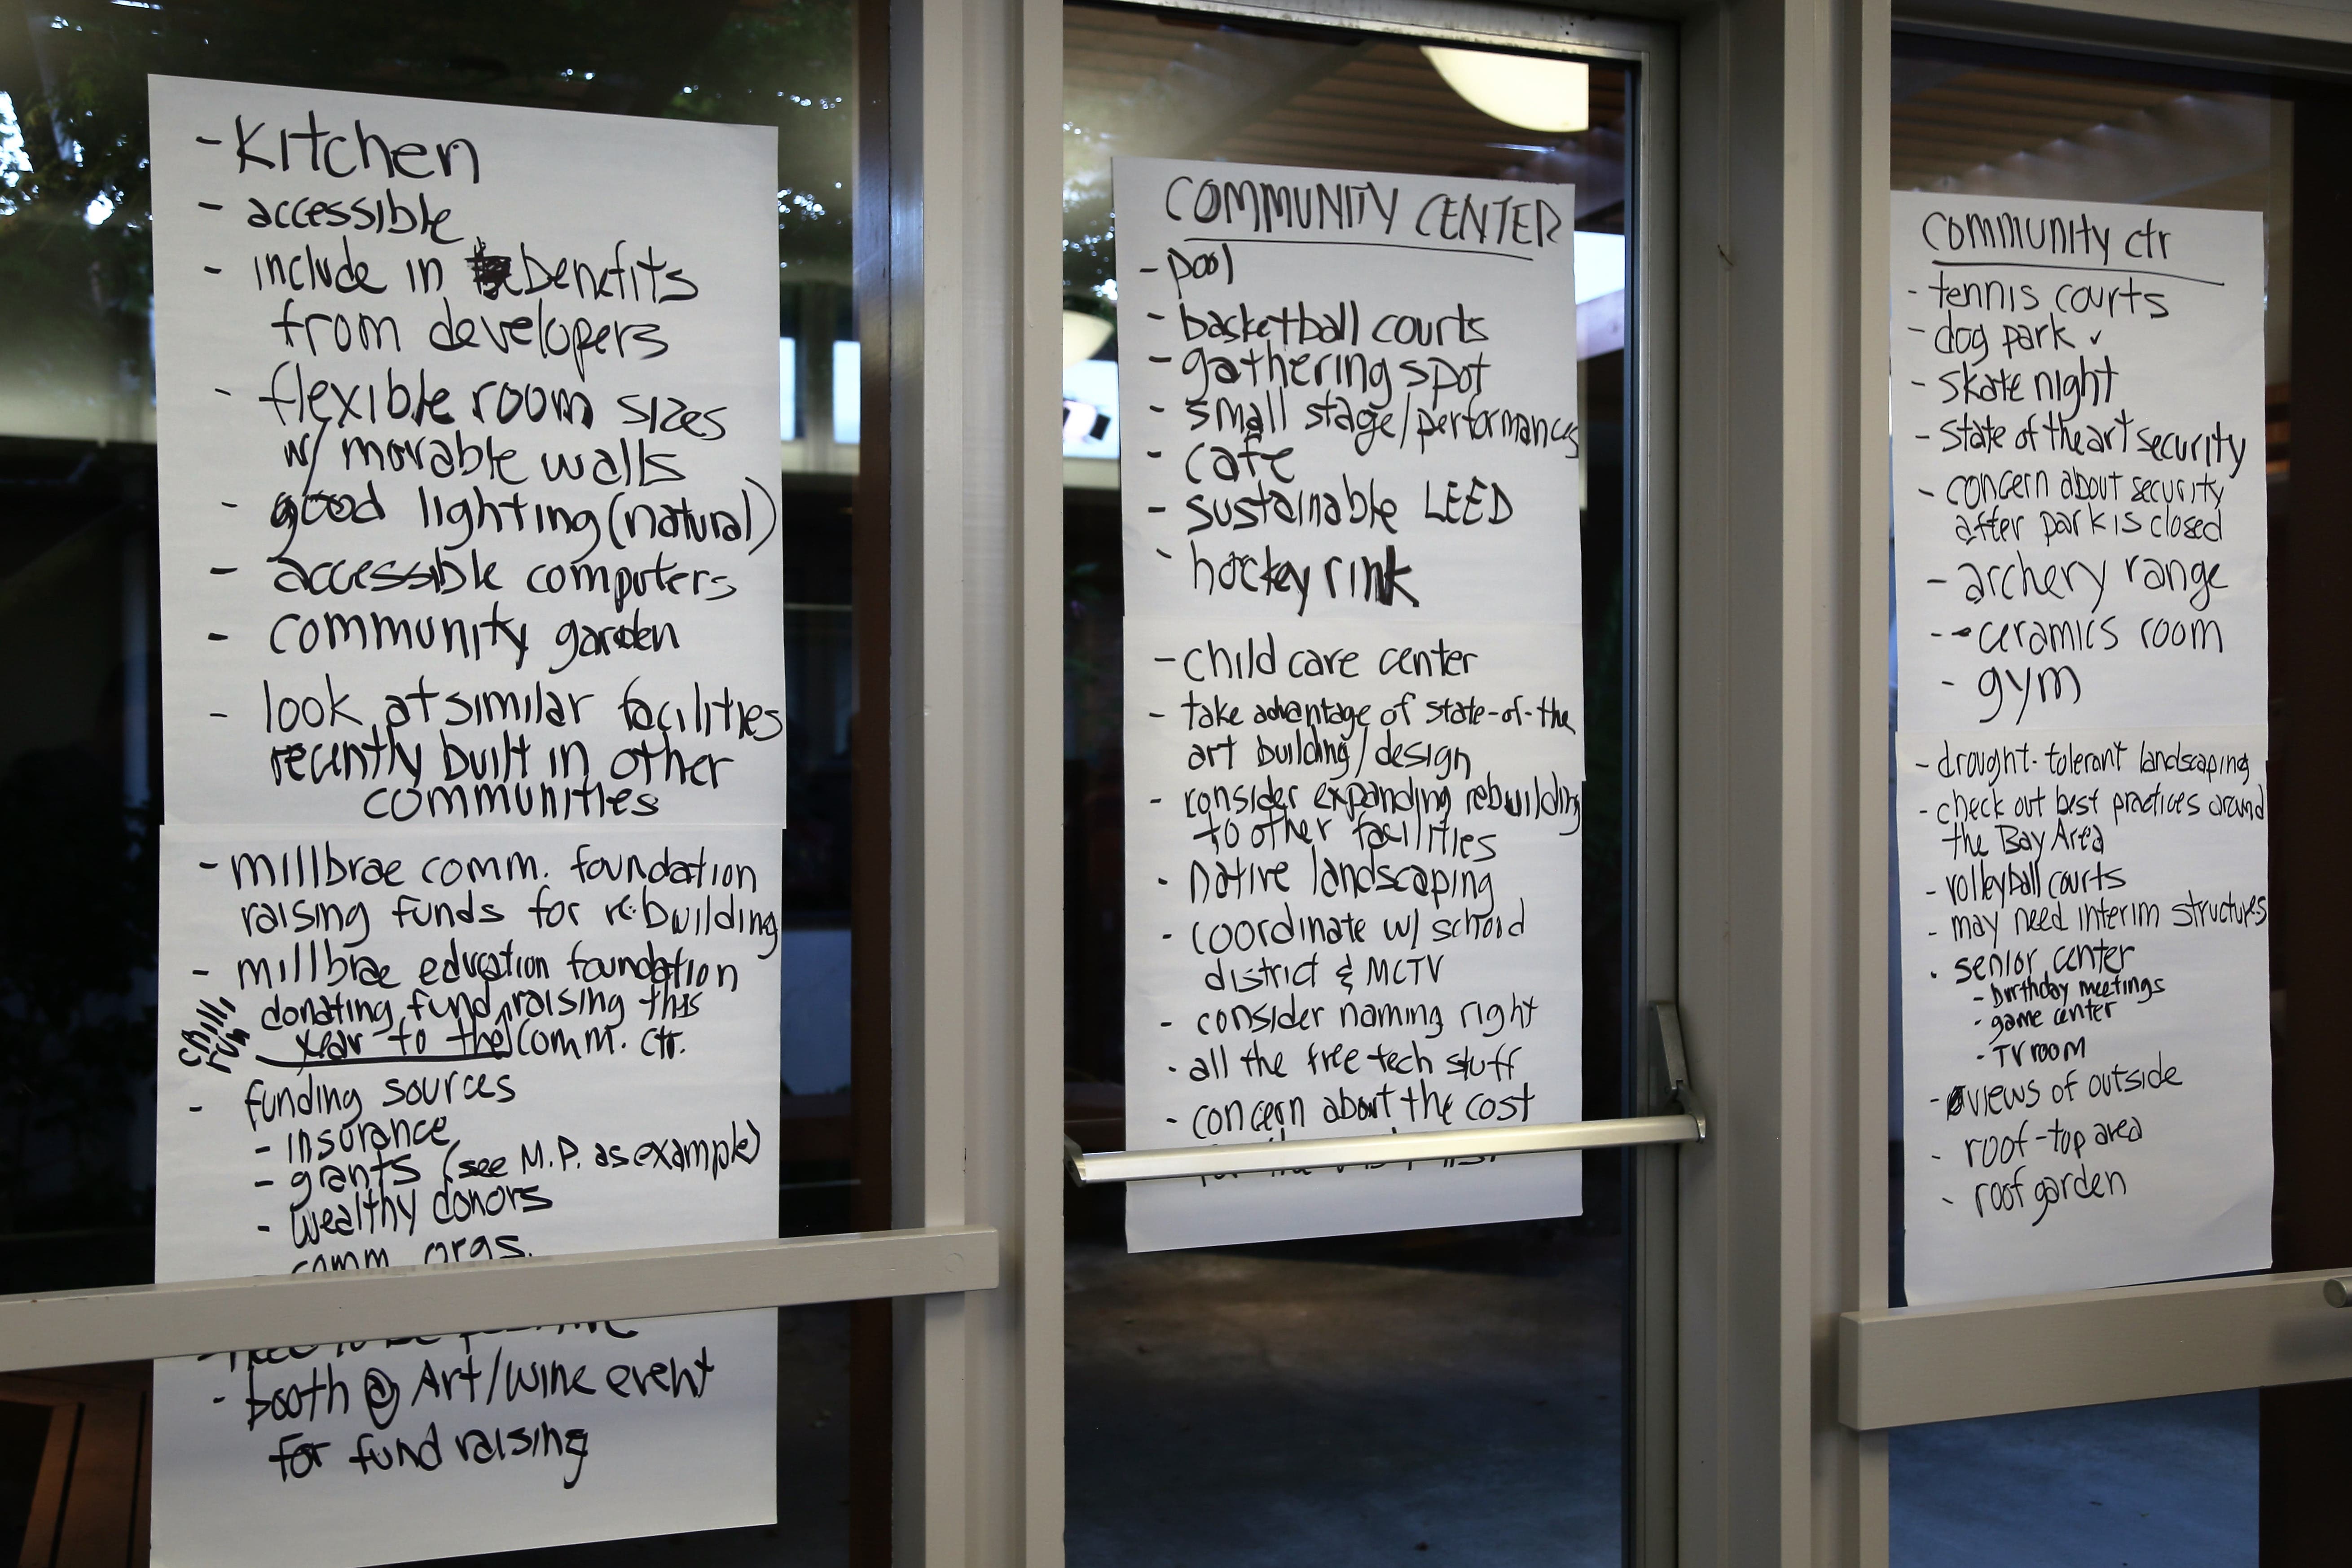 - Kitchen
- accessible
- include in benefits
from developers
- flexible room sizes
w/ movable walls
- good lighting (natural)
- accessible computers
- community garden
- look at similar facilities
recently built in other
communities
- millbrae comm. foundation
raising funds for rebuilding
- millbrae education foundation
donating fund raising this
year to the comm. ctr.
chilli
run
- funding sources
- insurance
- grants (see M.P. as example)
- wealthy donors
comm. orgs.
- need to be
- booth @ Art/wine event
for fund raising
COMMUNITY CENTER
- pool
- basketball courts
- gathering spot
- small stage/performances
- cafe
- sustainable LEED
- hockey rink
- child care center
- take advantage of state-of-the
art building/design
- consider expanding rebuilding
to other facilities
- native landscaping
- coordinate w/ school
district & MCTV
- consider naming right
- all the free tech stuff
- concern about the cost
community ctr
- tennis courts
- dog park ✓
- skate night
- state of the art security
- concern about security
after park is closed
- archery range
- ceramics room
- gym
- drought-tolerant landscaping
- check out best practices around
the Bay Area
- volleyball courts
- may need interim structures
- senior center
- birthday meetings
- game center
- TV room
- views of outside
- roof-top area
- roof garden